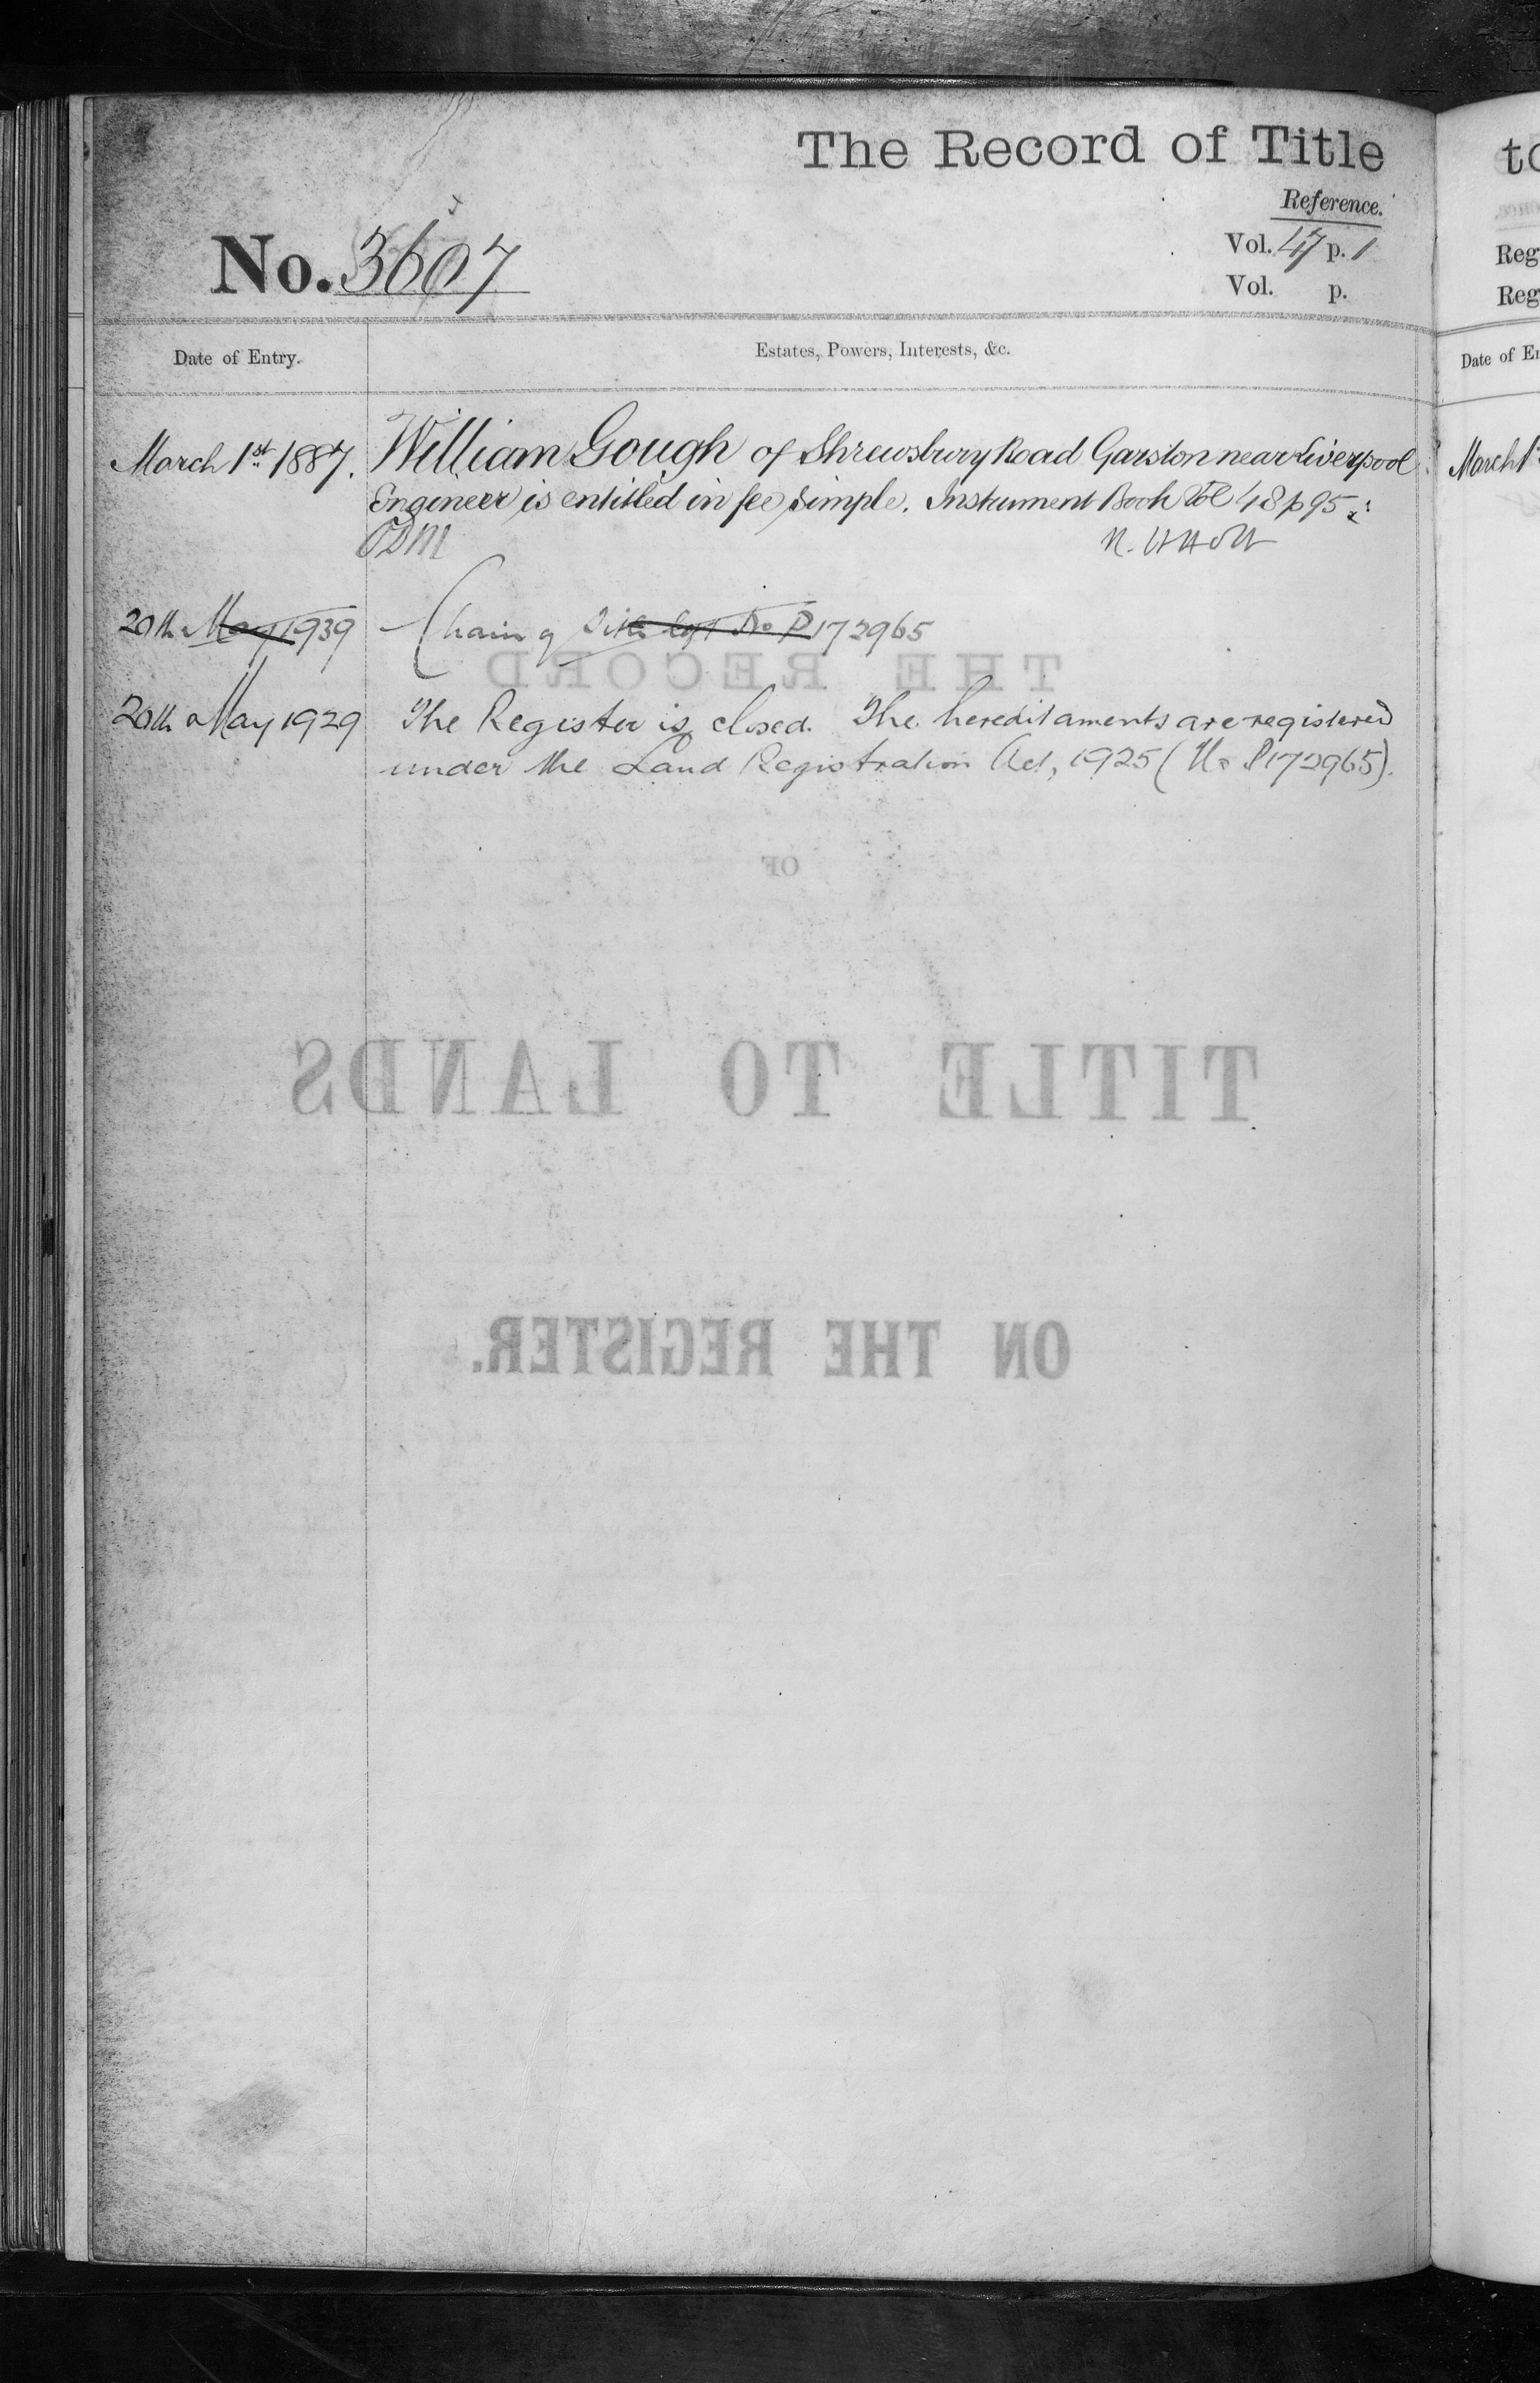 The Record of Title
Reference.
No. 3607
Vol. 47 p. 1
Vol. p.
Date of Entry.
Estates, Powers, Interests, &c.
March 1st 1887. William Gough of Shrewsbury Road Garston near Liverpool
Engineer is entitled in fee simple. Instrument Book Vol 48 p 95
20th May 1939 172965
THE RECORD
20th May 1929 The Register is closed. The hereditaments are registered
under the Land Registration Act, 1925 (No P172965).
OF
TITLE TO LANDS
ON THE REGISTER.
to
Reg
Reg
Date of En
March 1